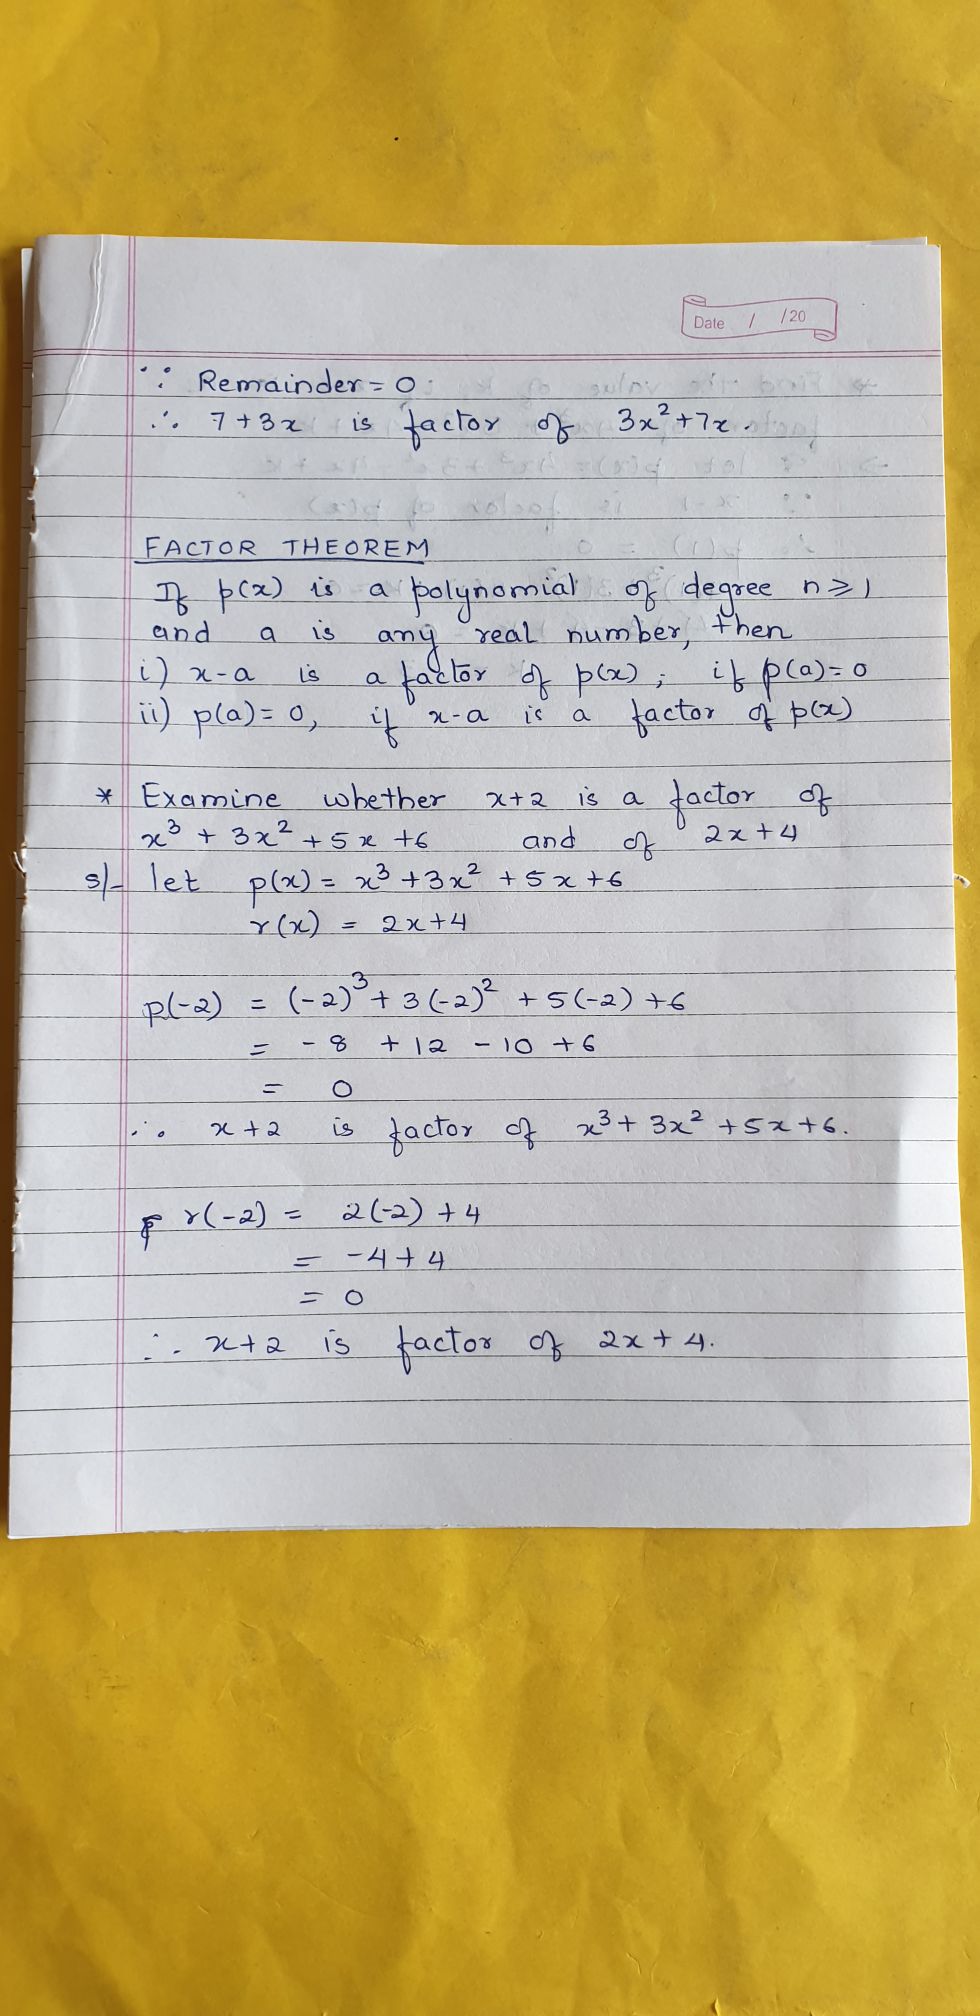 Date / /20
∵ Remainder = 0
∴ 7+3x is factor of 3x²+7x.
FACTOR THEOREM
If p(x) is a polynomial of degree n ≥ 1
and a is any real number, then
i) x-a is a factor of p(x), if p(a)=0
ii) p(a)=0, if x-a is a factor of p(x)
* Examine whether x+2 is a factor of
x³ + 3x² + 5x +6 and of 2x+4
s/- let p(x) = x³ +3x² + 5x+6
r(x) = 2x+4
p(-2) = (-2)³ + 3(-2)² + 5(-2) +6
= -8 + 12 - 10 + 6
= 0
∴ x+2 is factor of x³+ 3x² +5x+6.
r(-2) = 2(-2) +4
= -4+4
= 0
∴ x+2 is factor of 2x+4.